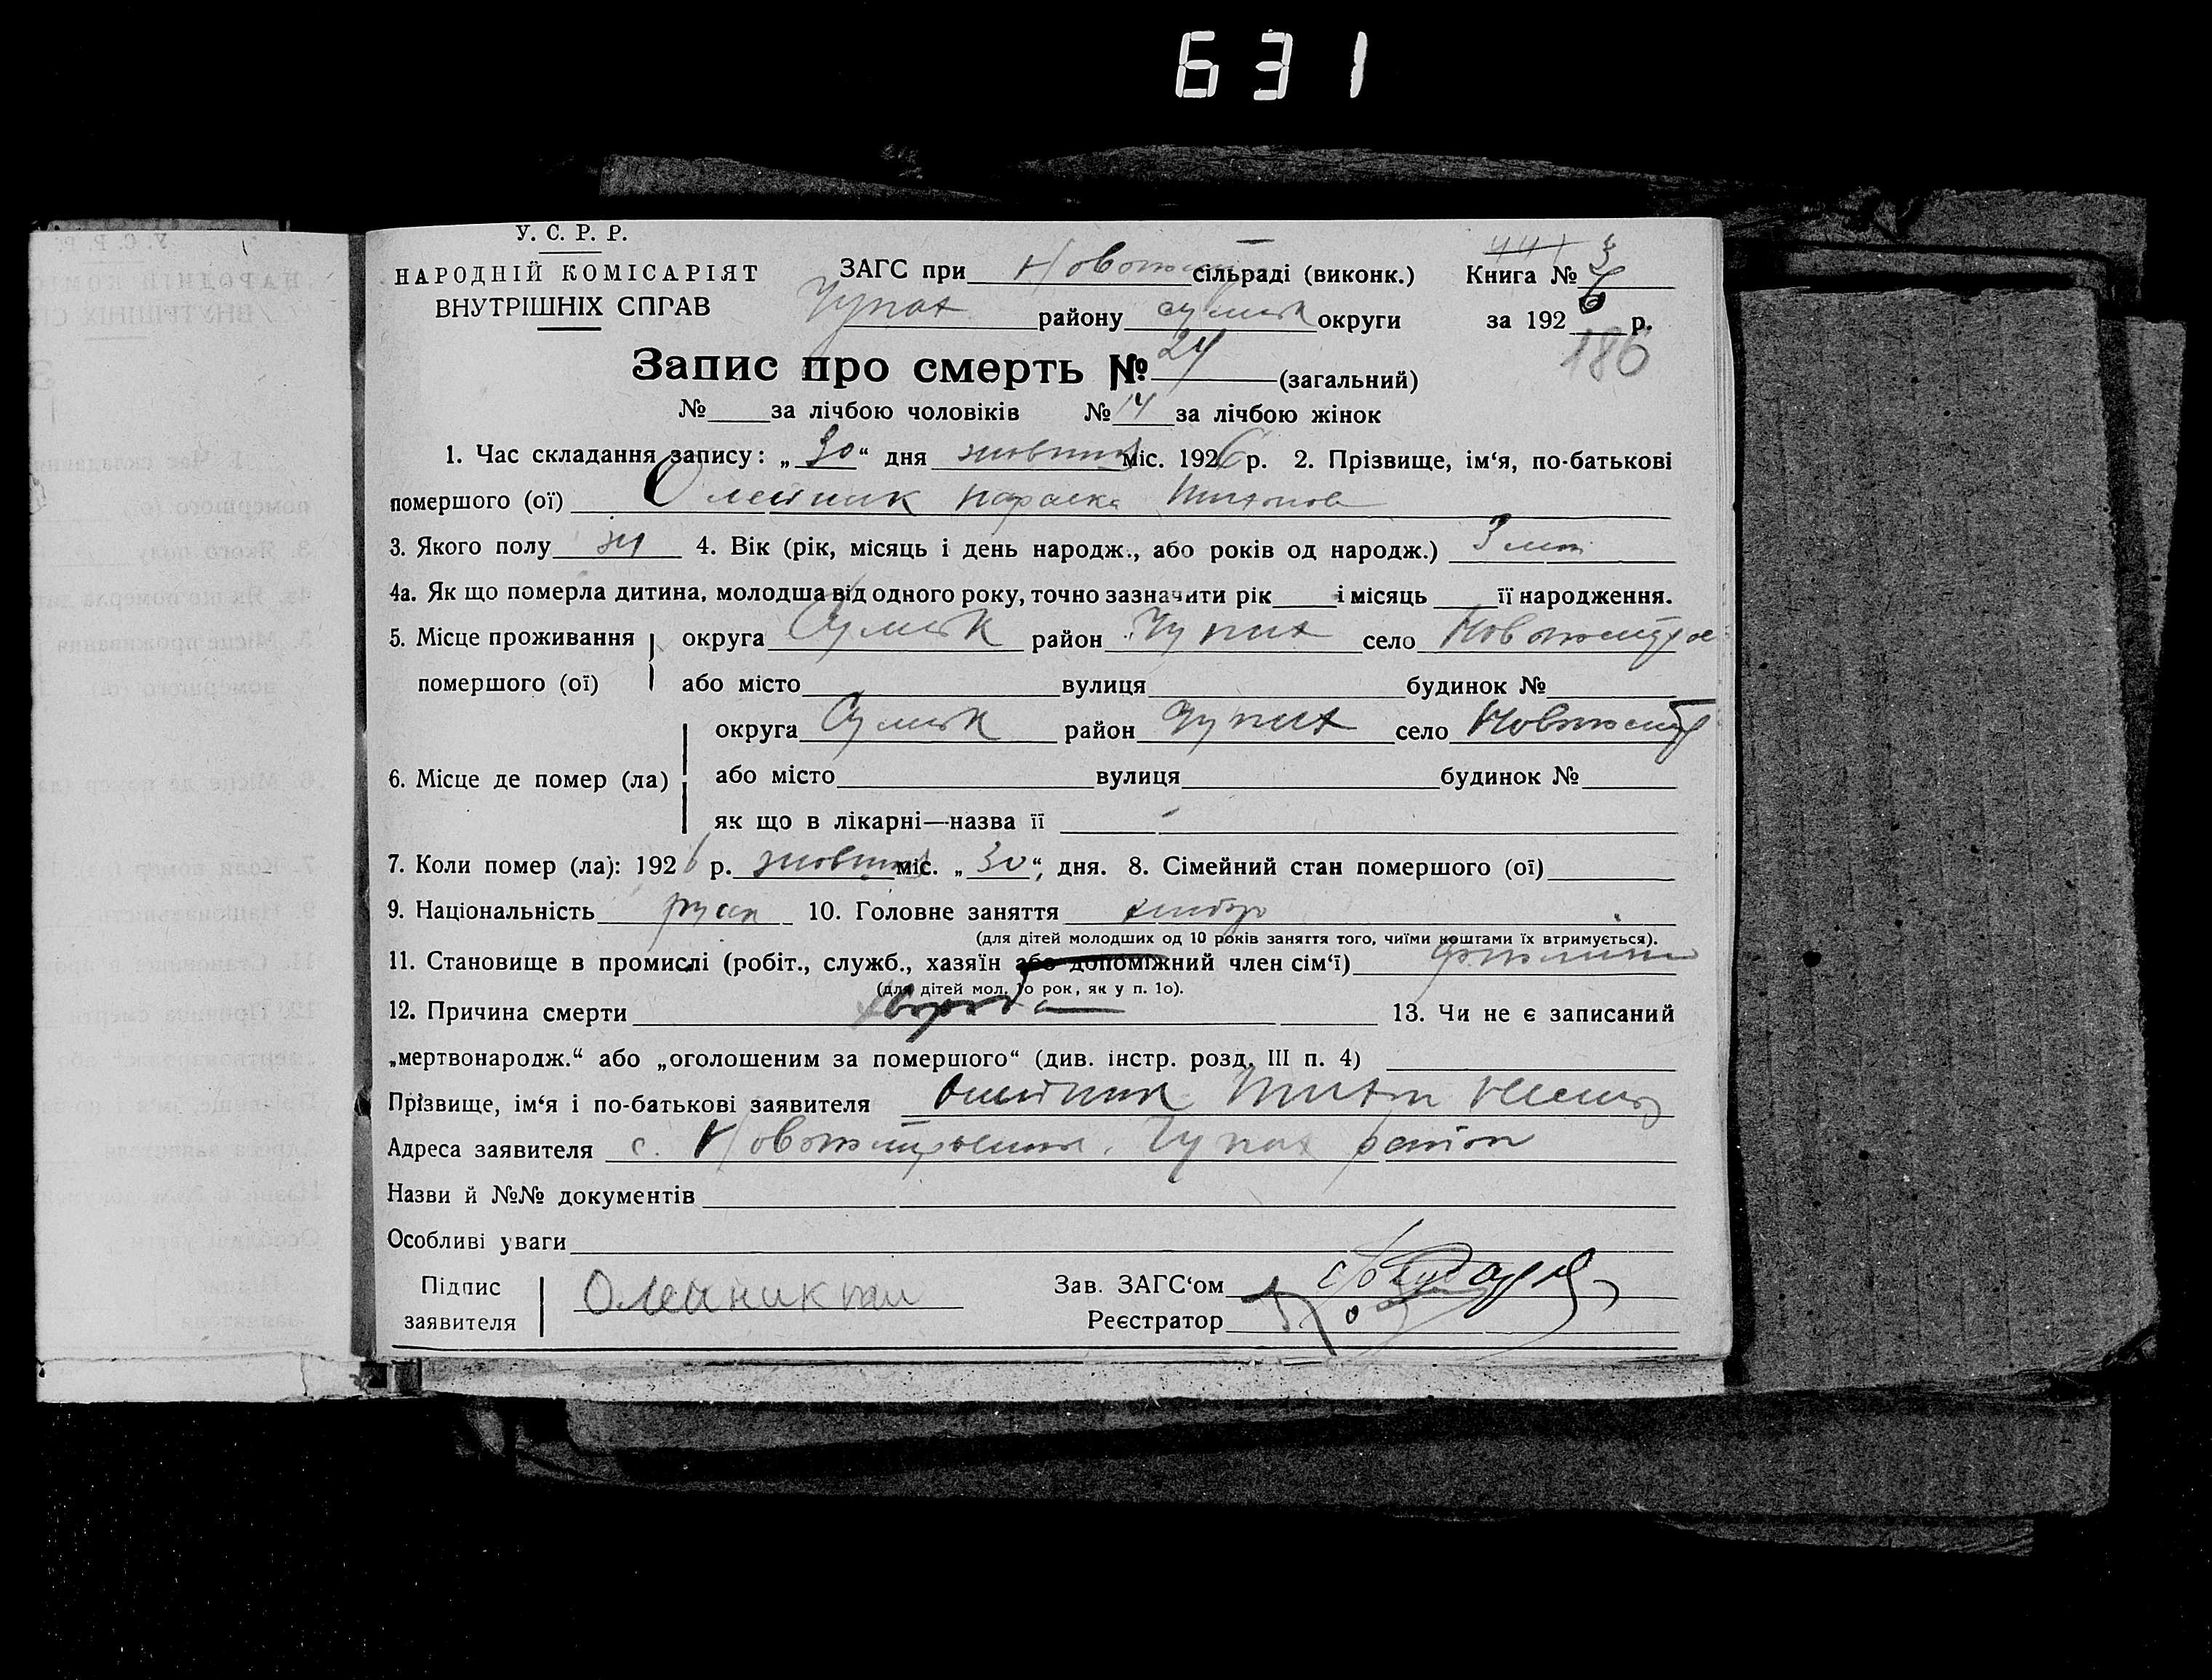 631
У. С. Р. Р.
НАРОДНІЙ КОМІСАРІЯТ ЗАГС при сільраді (виконк.) Книга №
ВНУТРІШНІХ СПРАВ Чупах району Сумськ округи за 1926 р.
186
Запис про смерть № 24 (загальний)
№ за лічбою чоловіків № 14 за лічбою жінок
1. Час складання запису: „30“ дня жовтня міс. 1926 р. 2. Прізвище, ім‘я, по-батькові
помершого (ої) Олейник Параска Тихонов
3. Якого полу ж 4. Вік (рік, місяць і день народж., або років од народж.) 3
4а. Як що померла дитина, молодша від одного року, точно зазначити рік і місяць її народження.
5. Місце проживання округа Сумськ район Чупах село
помершого (ої) або місто вулиця будинок №
округа Сумськ район Чупах село
6. Місце де помер (ла) або місто вулиця будинок №
як що в лікарні—назва її
7. Коли помер (ла): 1926 р. жовтня міс. „30“, дня. 8. Сімейний стан помершого (ої)
9. Національність русск 10. Головне заняття хлібор
(для дітей молодших од 10 років заняття того, чиїми коштами їх втримується).
11. Становище в промислі (робіт., служб., хазяїн або допоміжний член сім‘ї)
(для дітей мол. 1о рок, як у п. 1о).
12. Причина смерти 13. Чи не є записаний
„мертвонародж.“ або „оголошеним за помершого“ (див. інстр. розд. III п. 4)
Прізвище, ім‘я і по-батькові заявителя Олейник Тихон
Адреса заявителя с. Чупах район
Назви й №№ документів
Особливі уваги
Підпис Зав. ЗАГС‘ом
заявителя Олейник Реєстратор